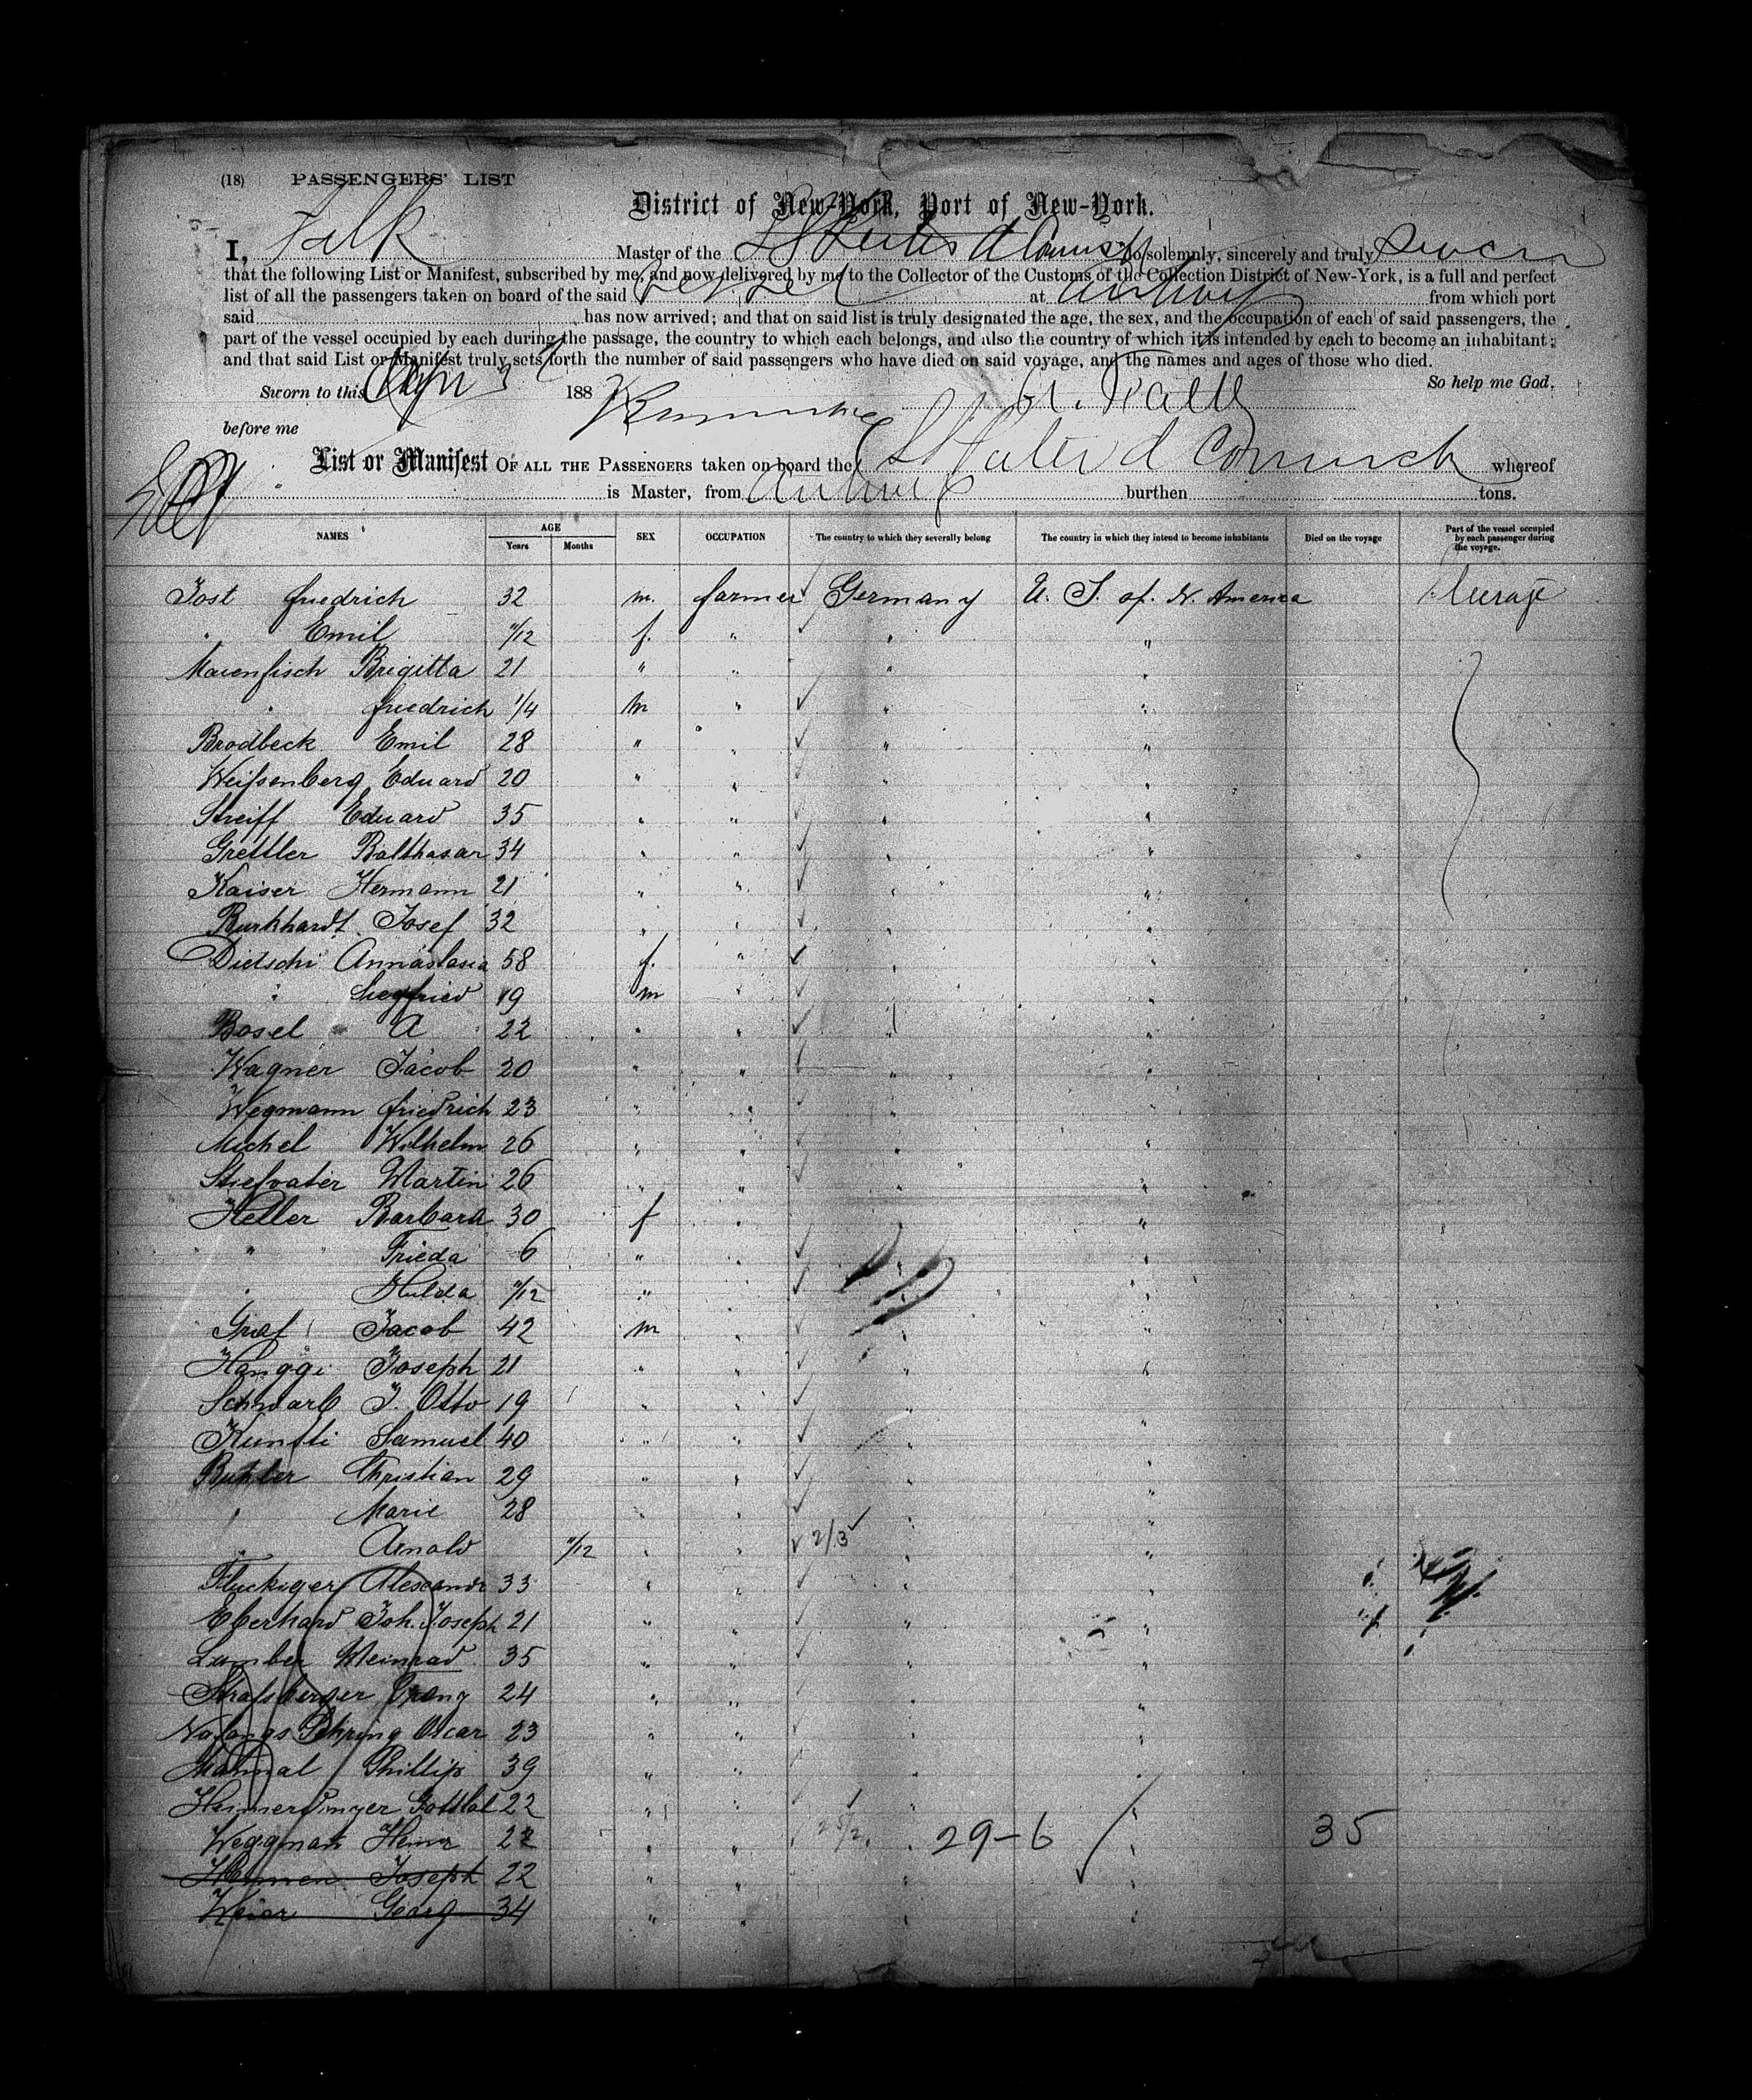 (18) PASSENGERS' LIST
District of New-York, Port of New-York.
I, Falk Master of the SS Pieter d Coninck do solemnly, sincerely and truly swear
that the following List or Manifest, subscribed by me, and now delivered by me to the Collector of the Customs of the Collection District of New-York, is a full and perfect
list of all the passengers taken on board of the said vessel at Antwerp from which port
said has now arrived; and that on said list is truly designated the age, the sex, and the occupation of each of said passengers, the
part of the vessel occupied by each during the passage, the country to which each belongs, and also the country of which it is intended by each to become an inhabitant;
and that said List or Manifest truly sets forth the number of said passengers who have died on said voyage, and the names and ages of those who died.
So help me God.
Sworn to this 188
before me
List or Manifest OF ALL THE PASSENGERS taken on board the SS Pieter d Coninck whereof
is Master, from Antwerp burthen tons.
NAMES AGE Years Months SEX OCCUPATION The country to which they severally belong The country in which they intend to become inhabitants Died on the voyage Part of the vessel occupied by each passenger during the voyage.
Jost friedrich 32 m. farmer Germany U. S. of. N. America Steerage
" Emil 11/12 f. " " "
Maienfisch Brigitta 21 " " " "
" friedrich 1/4 m " " "
Brodbeck Emil 28 " " " "
Weißenberg Eduard 20 " " " "
Streiff Eduard 35 " " " "
Grettler Balthasar 34 " " " "
Kaiser Hermann 21 " " " "
Burkhardt Josef 32 " " " "
Dietschi Annastasia 58 f. " " "
" Siegfried 19 m " " "
Bosel A 22 " " " "
Wagner Jacob 20 " " " "
Wegmann friedrich 23 " " " "
Michel Wilhelm 26 " " " "
Stiefvater Martin 26 " " " "
Heller Barbara 30 f " "
" Frieda 6 " " " "
" Hulda 11/12 " " " "
Graf Jacob 42 m " " "
Hanggi Joseph 21 " " " "
Schwarb J. Otto 19 " " " "
Kunfli Samuel 40 " " " "
Buhler Christian 29 " " " "
" Marie 28 " " " "
" Arnold 11/12 " " 2/3 " "
Fluckiger Alexandr 33 " " " "
Eberhard Joh. Joseph 21 " " " "
Lumber Meinrad 35 " " " "
Straßberger Franz 24 " " " "
Oscar 23 " " " "
Phillip 39 " " " "
Heimerdinger Gottlob 22 " " " "
Weggman 22 " " " 29-6 " 35
Joseph 22 " " " "
Weier Georg 34 " " " "